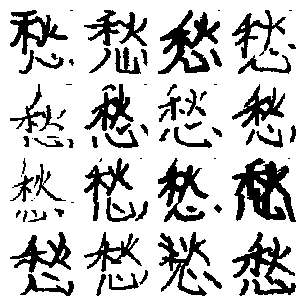 愁 愁 愁 愁
愁 愁 愁 愁
愁 愁 愁 愁
愁 愁 愁 愁